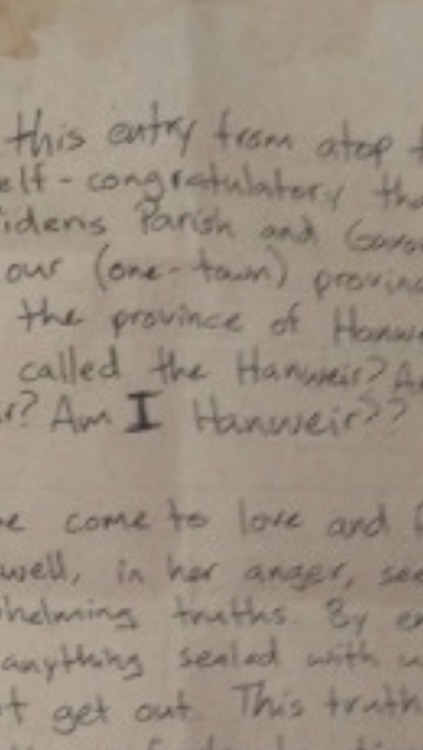 this entry from atop t
elf-congratulatory tha
idens Parish and Gavo
our (one-town) provinc
the province of Hanwe
called the Hanweir? Ar
r? Am I Hanweir??
e come to love and
well, in her anger, see
helming truths. By en
anything sealed with u
t get out. This truth